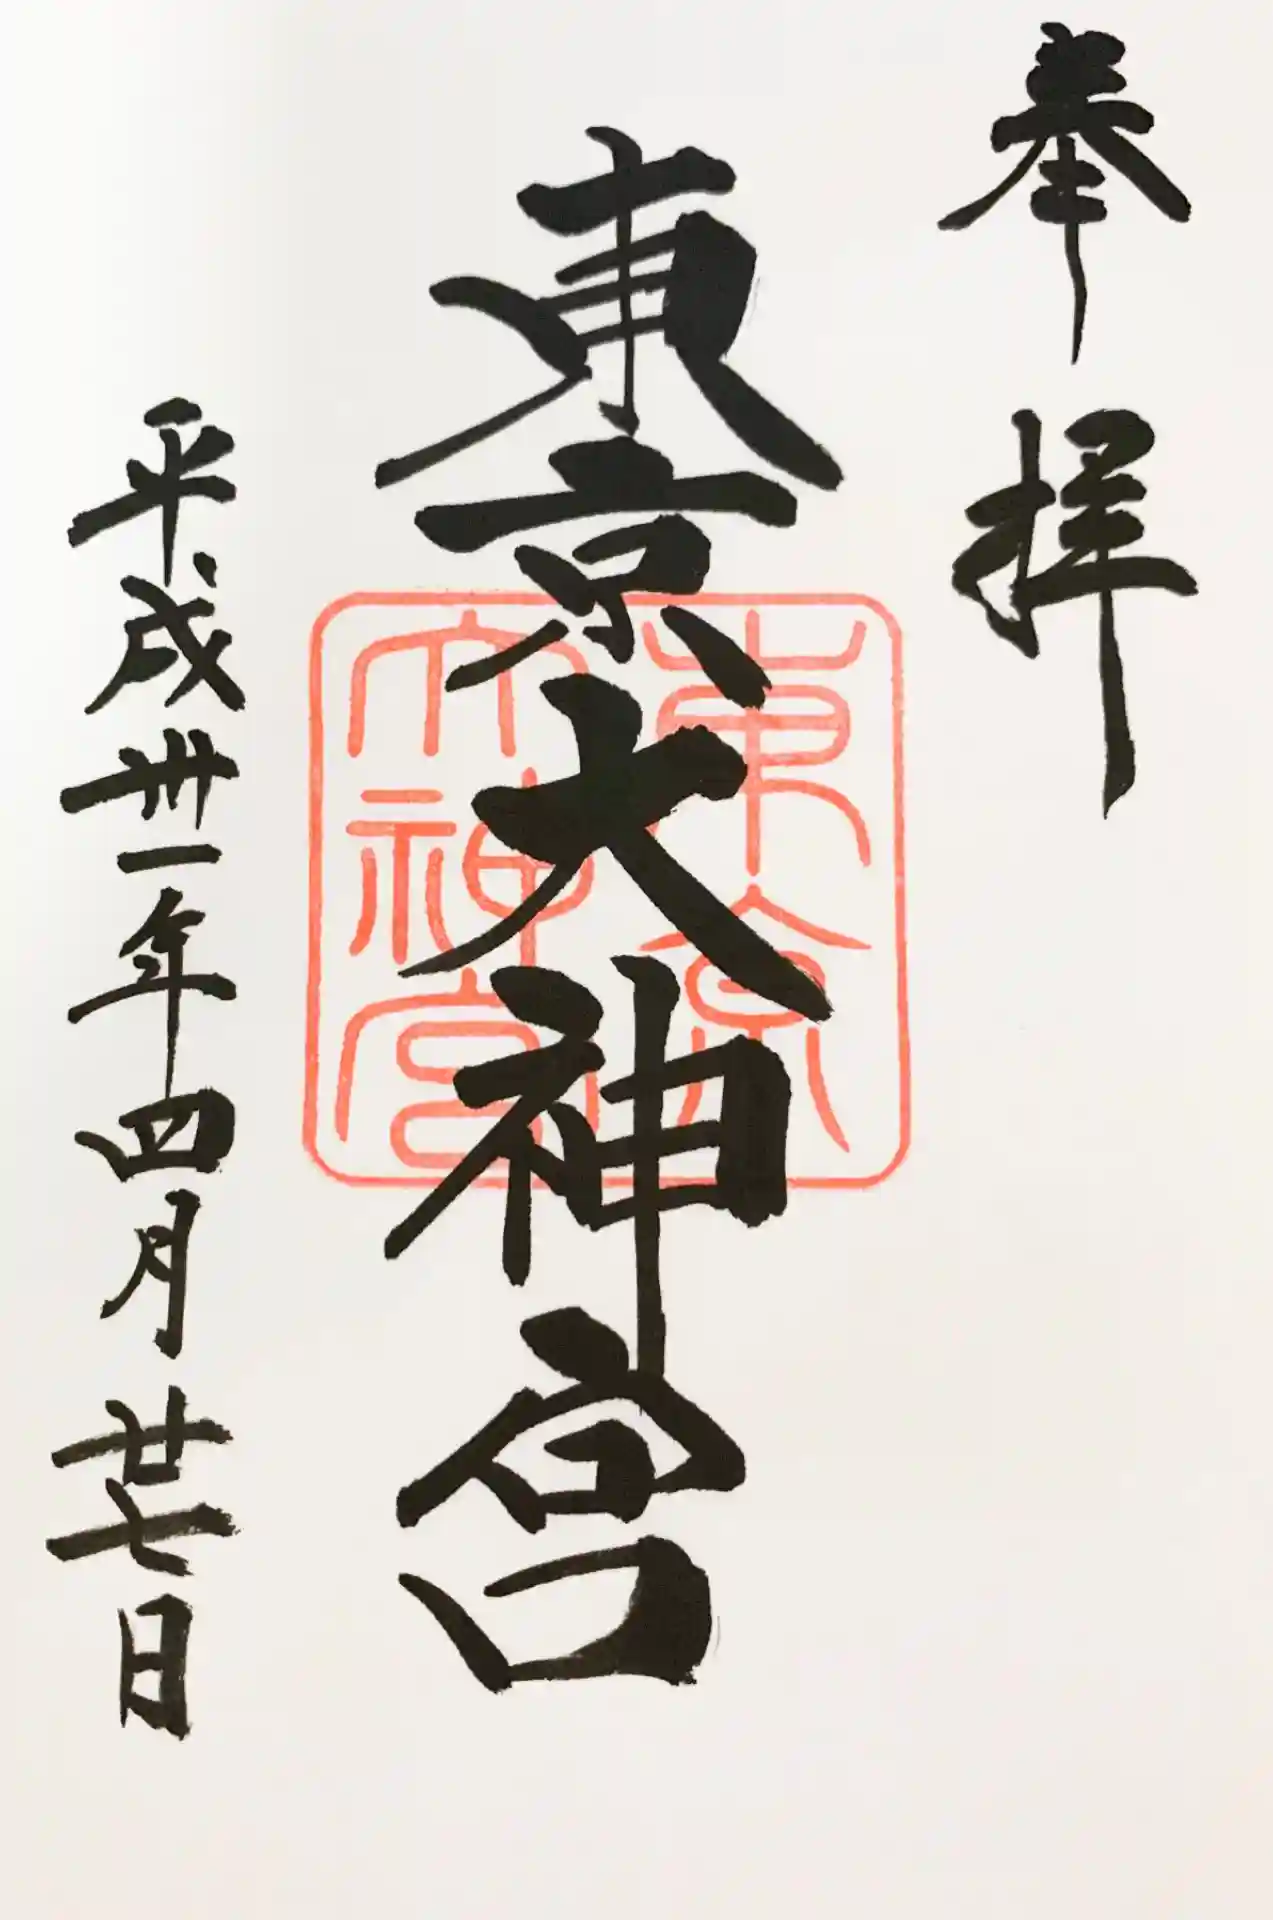 奉拝
東京大神宮
東京
大神宮
平成卅一年四月廿七日